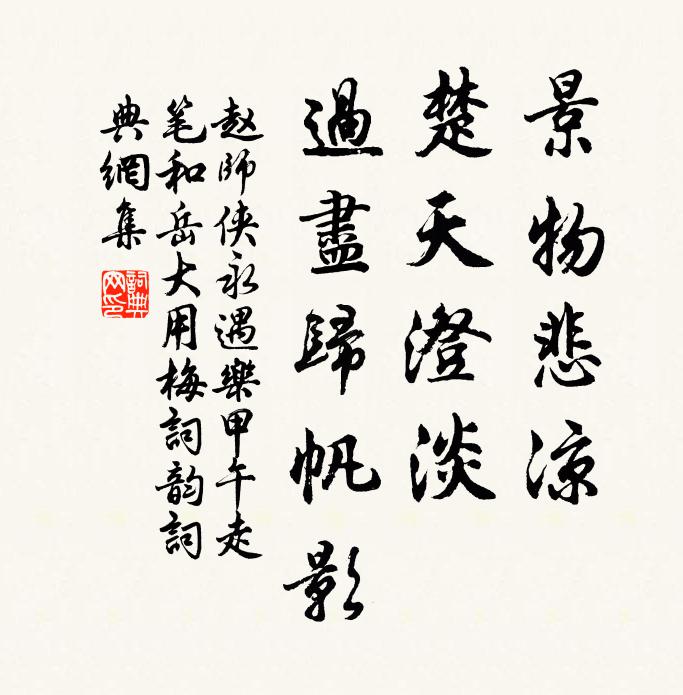 景物悲凉
楚天澄淡
過盡歸帆影
赵師侠永遇樂甲午走
笔和岳大用梅詞韵詞
典網集
詞典网印